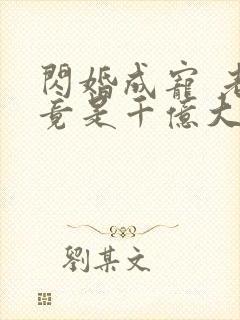 閃婚成寵 老
竟是千億大
劉某文